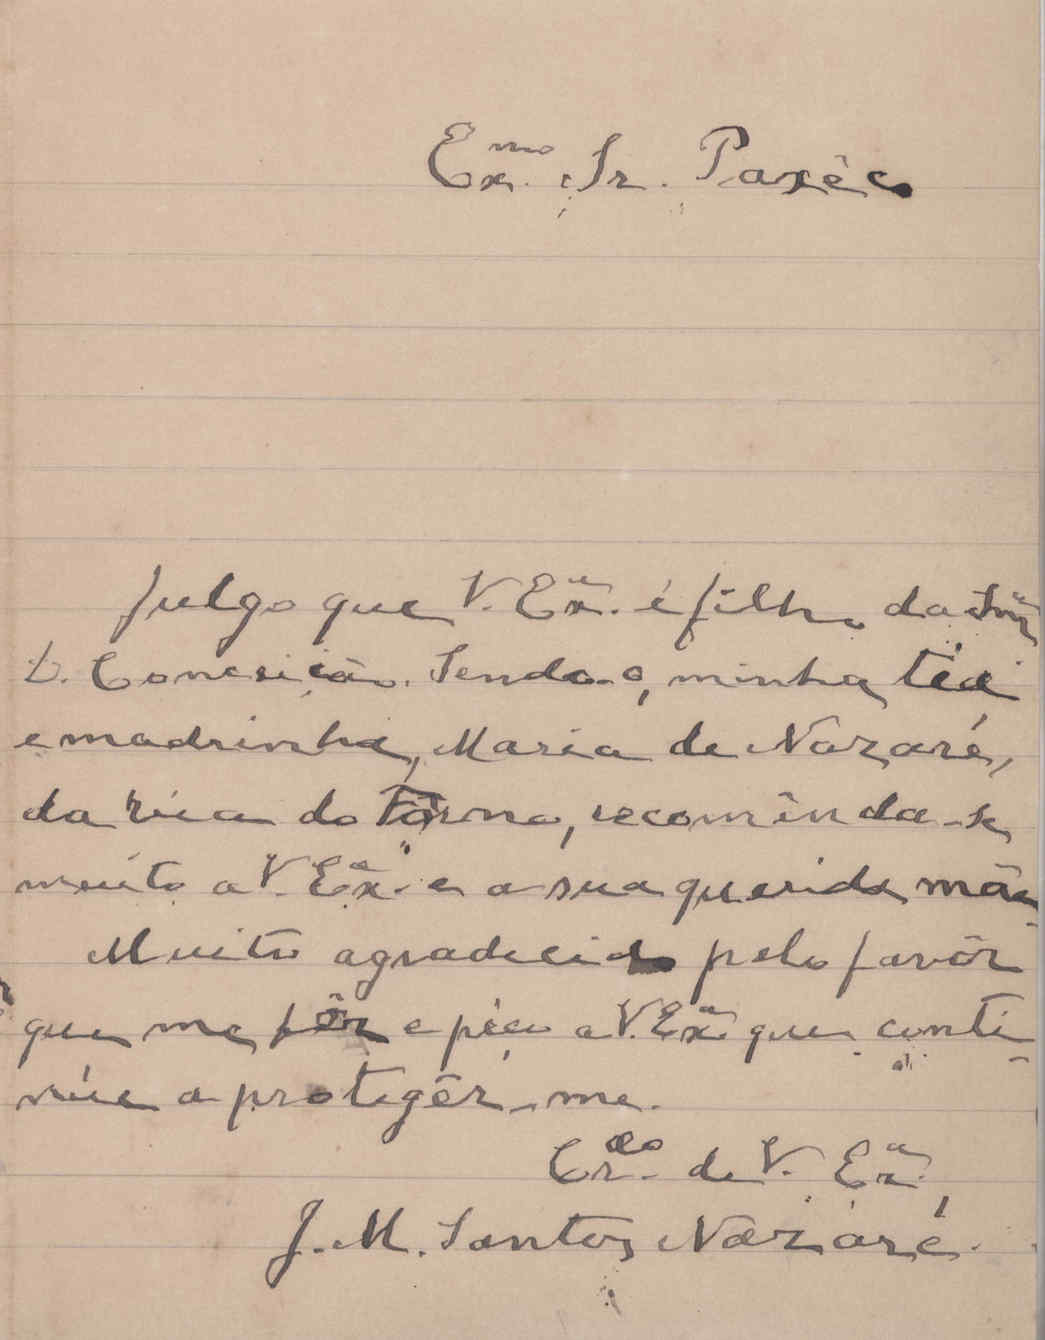 Ex.mo Sr. Paxêco
Julgo que V. Ex.a é filho da Snr.a
D. Conceição. Sendo-o, minha tia
e madrinha, Maria de Nazaré,
da rúa do Tôrno, recomênda-se
muito a V. Ex.a e a sua querida mãe.
Muito agradecido pelo favôr
que me fêz e péço a V. Ex.a que conti-
núe a protegêr-me.
Cr.do de V. Ex.a,
J. M. Santos Nazaré.